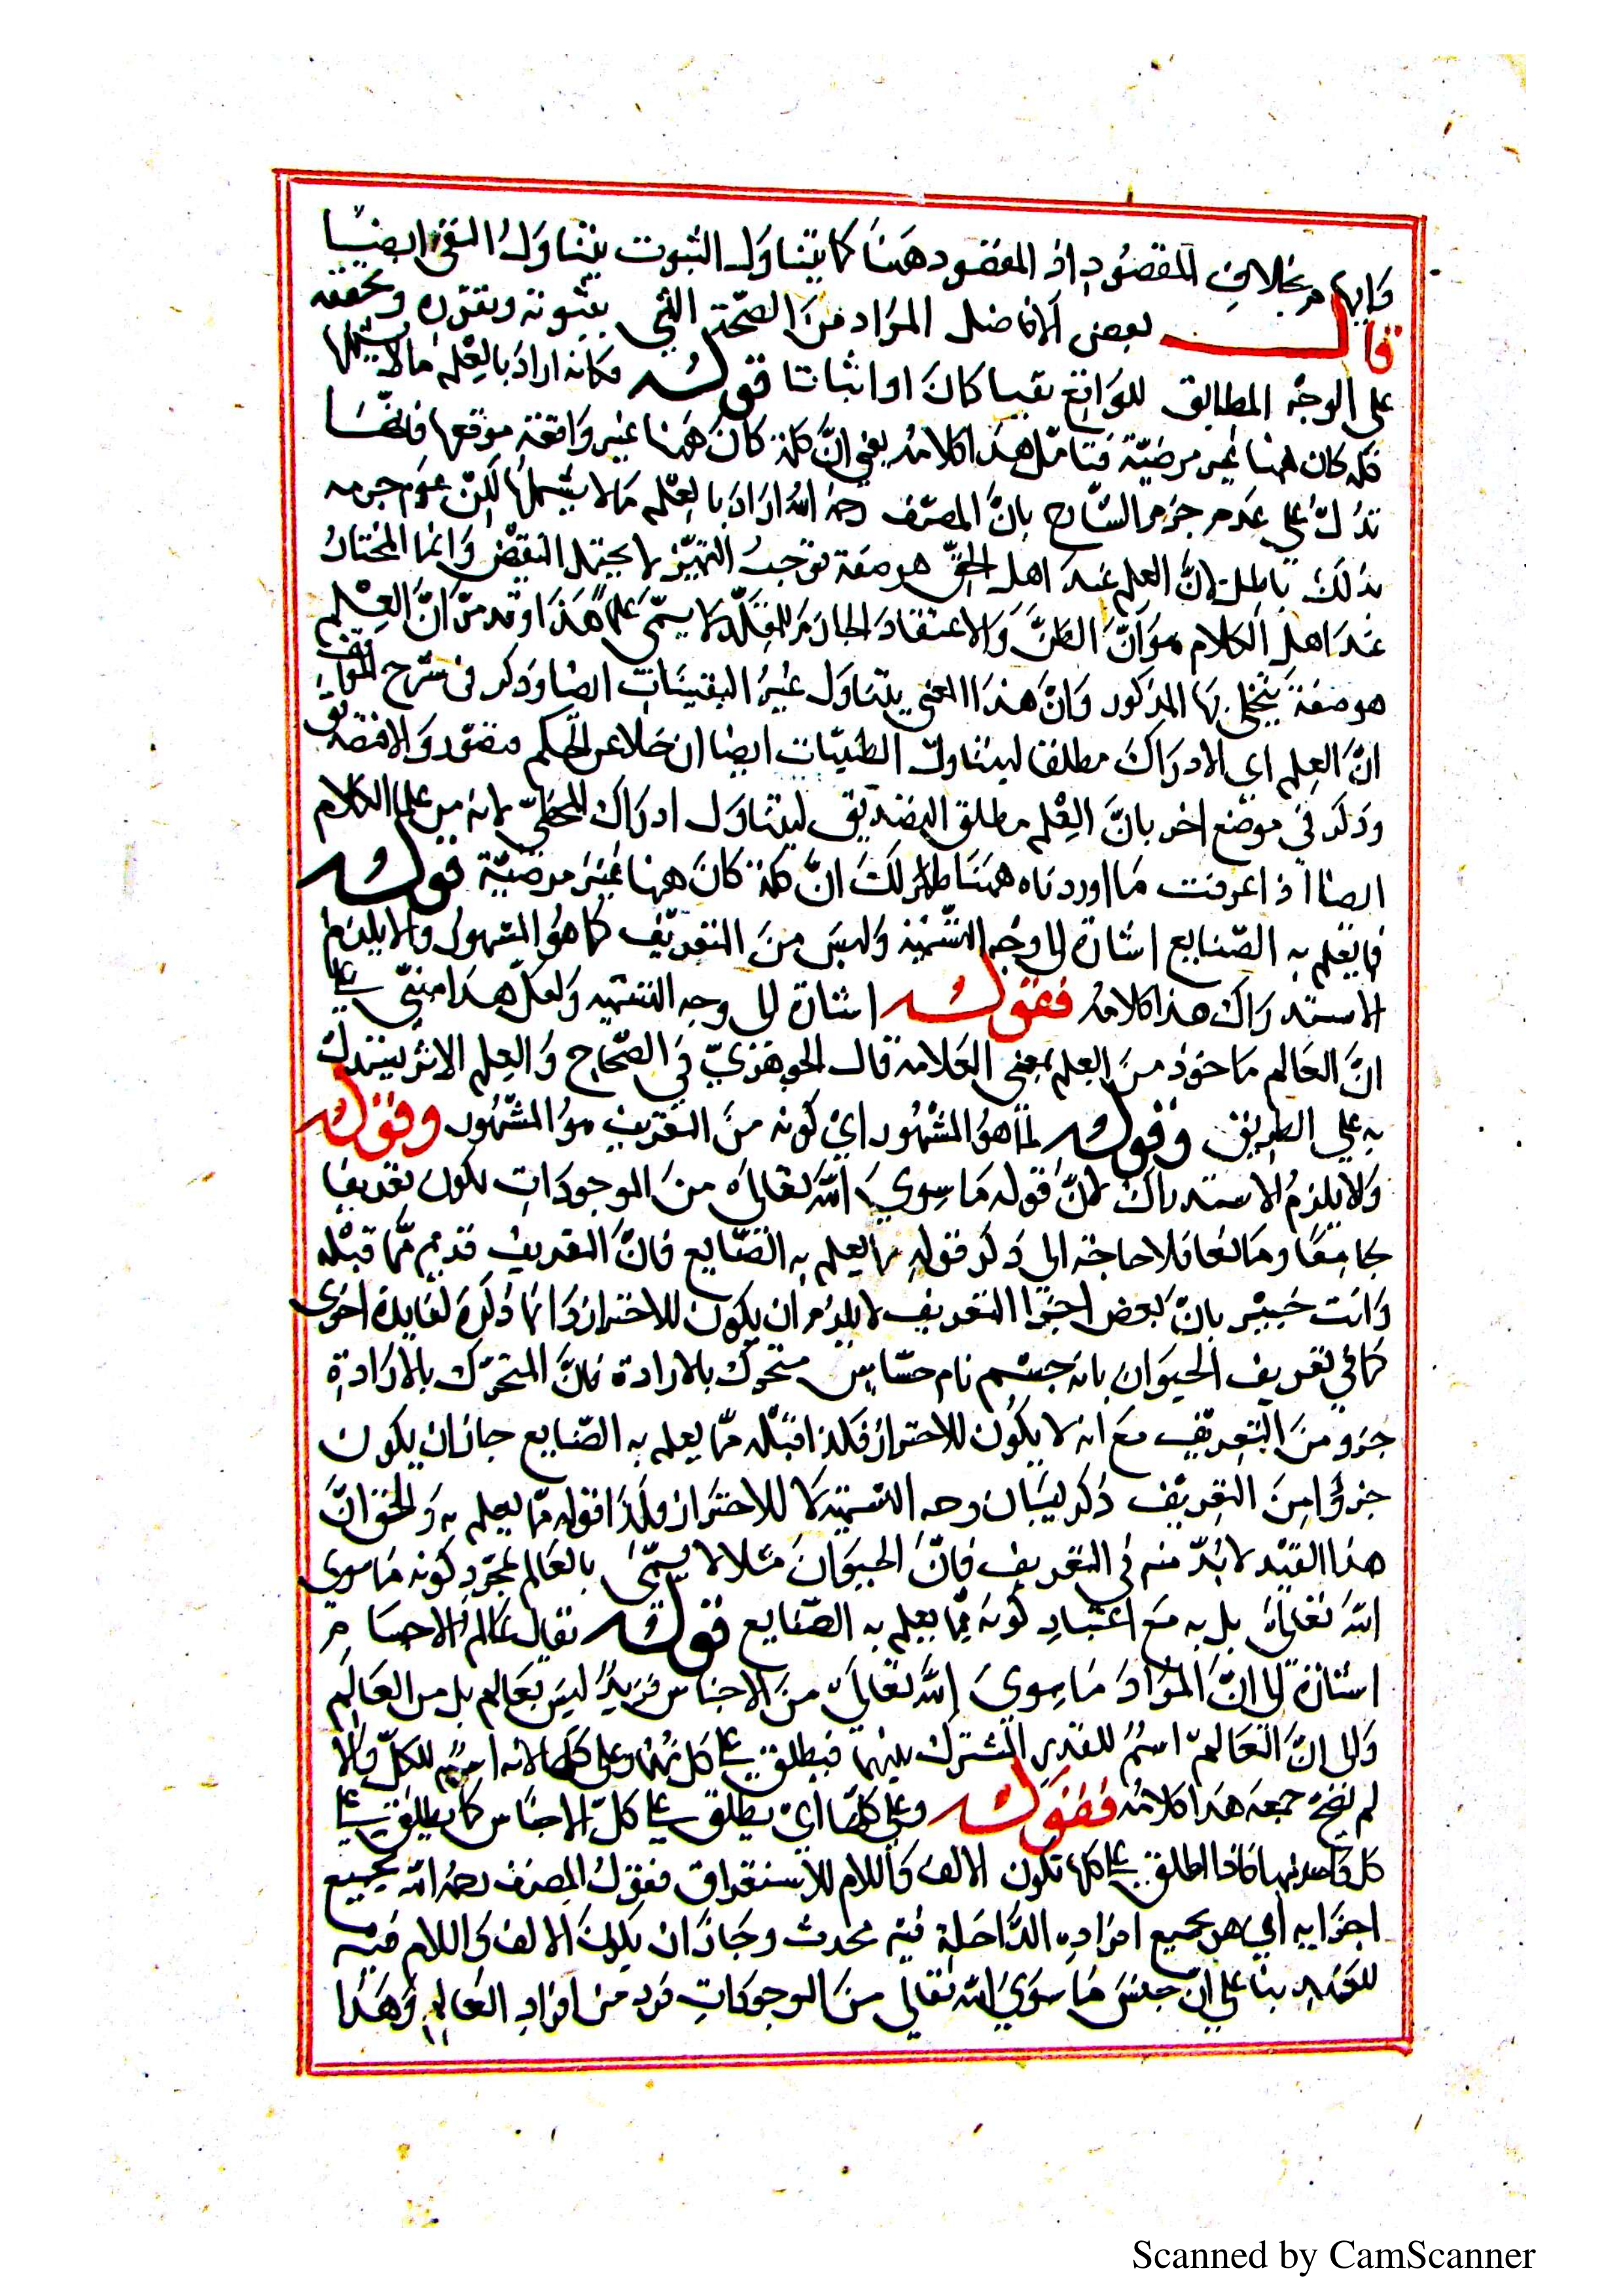 وإيهام بخلاف المقصود إذ المقصود هنا كما يتناول الثبوت يتناول النفي ايضا
قال بعض الافاضل المراد من الصحة التي بثبوته وتقرره وتحققه
على الوجه المطابق للواقع نفيا كان او اثباتا قوله فكانه اراد بالعلم ما لا يشملها
فكلمة كان ههنا غير مرضية فتأمل هذا كلامه يعني ان كلمة كان ههنا غير واقعة موقعها فانها
تدل على عدم جزم الشارح بان المصنف رحمه الله اراد بالعلم ما لا يشملها لكن عدم جزمه
بذلك باطل لان العلم عند اهل الحق هو صفة توجب التمييز لا يحتمل النقيض وانما المختار
عند اهل الكلام هو ان الظن والاعتقاد الجازم للمقلد لا يسمى علما هذا وقد مر ان العلم
هو صفة يتجلى بها المذكور وان هذا المعنى يتناول غير اليقينيات ايضا وذكر في شرح المواقف
ان العلم اي الادراك مطلقا ليتناول الظنيات ايضا ان خلا عن الحكم فتصور والا فتصديق
وذكر في موضع اخر بان العلم مطلق التصديق ليتناول ادراك المخطئ لانه من علماء الكلام
ايضا اذا عرفت ما اوردناه ههنا ظهر لك ان كلمة كان ههنا غير مرضية قوله
مما يعلم به الصنايع اشارة الى وجه التسمية وليس من التعريف كما هو المشهور والا يلزم
الاستدراك هذا كلامه فقوله اشارة الى وجه التسمية ولعل هذا مبني على
ان العالم ماخوذ من العلم بمعنى العلامة قال الجوهري في الصحاح والعلم الاثر يستدل
به على الطريق وقوله كما هو المشهور اي كونه من التعريف هو المشهور وقوله
ولا يلزم الاستدراك لان قوله ما سوى الله تعالى من الموجودات يكون تعريفا
جامعا ومانعا فلا حاجة الى ذكر قوله مما يعلم به الصنايع فان التعريف قد تم مما قبله
وانت خبير بان بعض اجزا التعريف لا يلزم ان يكون للاحتراز وانما ذكره لفايدة اخرى
كما في تعريف الحيوان بانه جسم نام حساس متحرك بالارادة فان المتحرك بالارادة
جزو من التعريف مع انه لا يكون للاحتراز فكذا قوله مما يعلم به الصنايع جاز ان يكون
جزؤا من التعريف ذكر لبيان وجه التسمية لا للاحتراز وكذا قوله مما يعلم به والحق ان
هذا القيد لا بد منه في التعريف فان الحيوان مثلا لا يسمى بالعالم بمجرد كونه ما سوى
الله تعالى بل به مع اعتبار كونه مما يعلم به الصنايع قوله يقال عالم الاجسام
اشارة الى ان المراد ما سوى الله تعالى من الاجناس فزيد ليس بعالم بل من العالم
والى ان العالم اسم للقدر المشترك بينهما فيطلق على كل منهما وعلى كلها لانه اسم للكل والا
لم يصح جمعه هذا كلامه فقوله وعلى كلها اي يطلق على كل الاجناس كما يطلق على
كل واحد منها فاذا اطلق على كلها تكون الالف واللام للاستغراق فقول المصنف رحمه الله بجميع
اجزايه اي هو بجميع افراده الداخلة فيه محدث وجاز ان يكون الالف واللام فيه
للعهد بنا على ان جنس ما سوى الله تعالى من الموجودات فرد من افراد العالم وهذا
Scanned by CamScanner